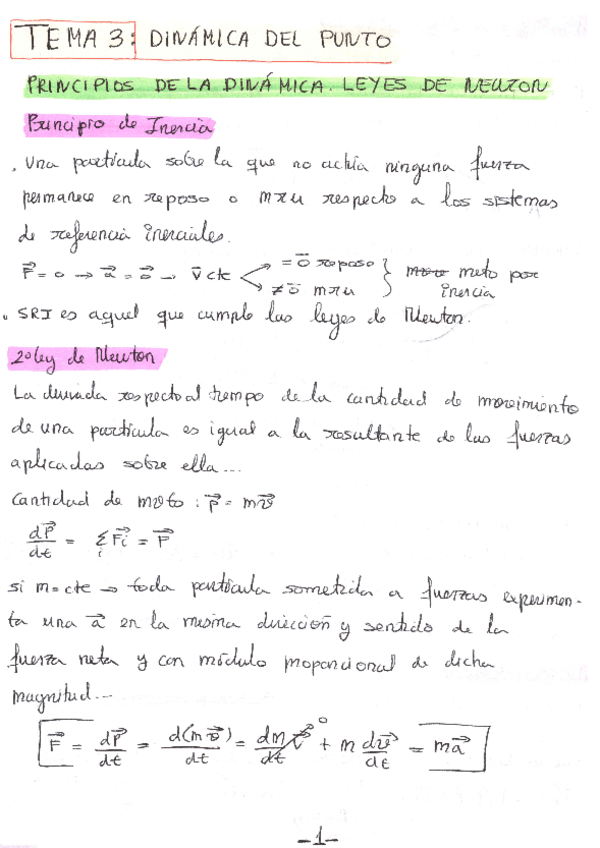 TEMA 3: DINÁMICA DEL PUNTO
PRINCIPIOS DE LA DINÁMICA. LEYES DE NEWTON
Principio de Inercia
. Una partícula sobre la que no actúa ninguna fuerza
permanece en reposo o mru respecto a los sistemas
de referencia inerciales.
F⃗ = 0 → a⃗ = 0⃗ → v⃗ cte < = 0⃗ reposo } mvto por
≠ 0⃗ mru inercia
. SRI es aquel que cumple las leyes de Newton.
2º ley de Newton
La derivada respecto al tiempo de la cantidad de movimiento
de una partícula es igual a la resultante de las fuerzas
aplicadas sobre ella...
Cantidad de mvto : p⃗ = mv⃗
dp⃗/dt = Σᵢ F⃗i = F⃗
si m = cte → toda partícula sometida a fuerzas experimen-
ta una a⃗ en la misma dirección y sentido de la
fuerza neta y con módulo proporcional de dicha
magnitud...
F⃗ = dp⃗/dt = d(mv⃗)/dt = dm/dt v⃗ 0 + m dv⃗/dt = ma⃗
-1-